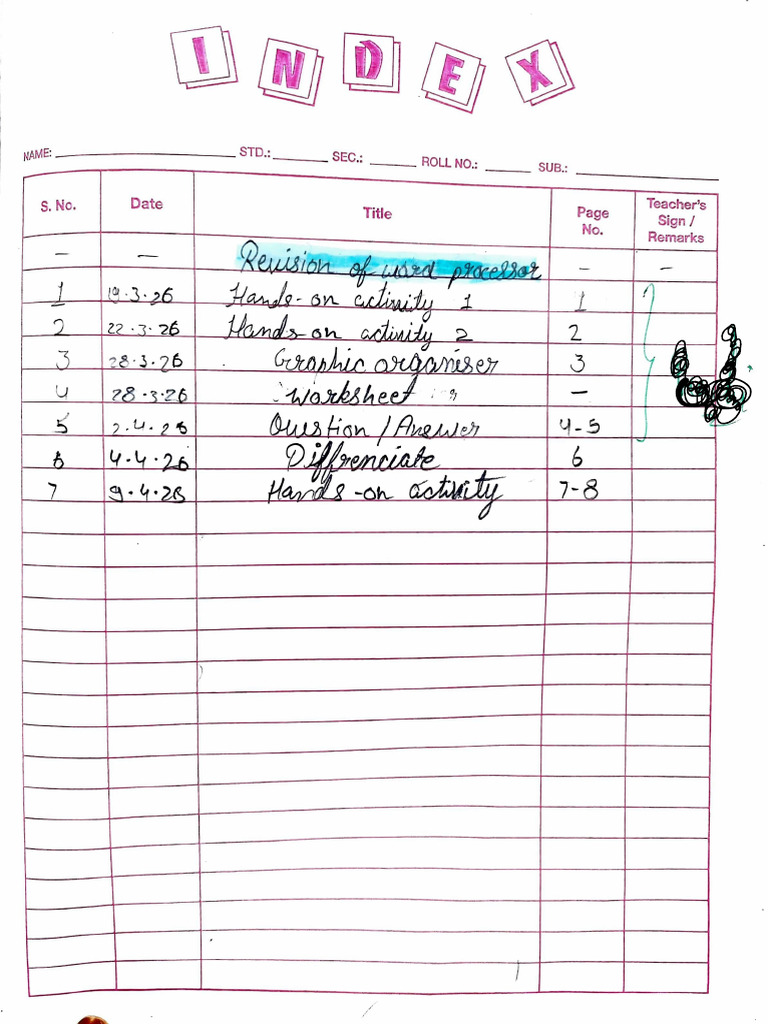 INDEX
NAME: STD.: SEC.: ROLL NO.: SUB.:
S. No. Date Title Page No. Teacher's Sign / Remarks
- - Revision of word processor - -
1 19.3.26 Hands-on activity 1 1
2 22.3.26 Hands-on activity 2 2
3 28.3.26 Graphic organiser 3
4 28.3.26 Worksheet -
5 2.4.26 Question / Answer 4-5
6 4.4.26 Diffrenciate 6
7 9.4.26 Hands-on activity 7-8